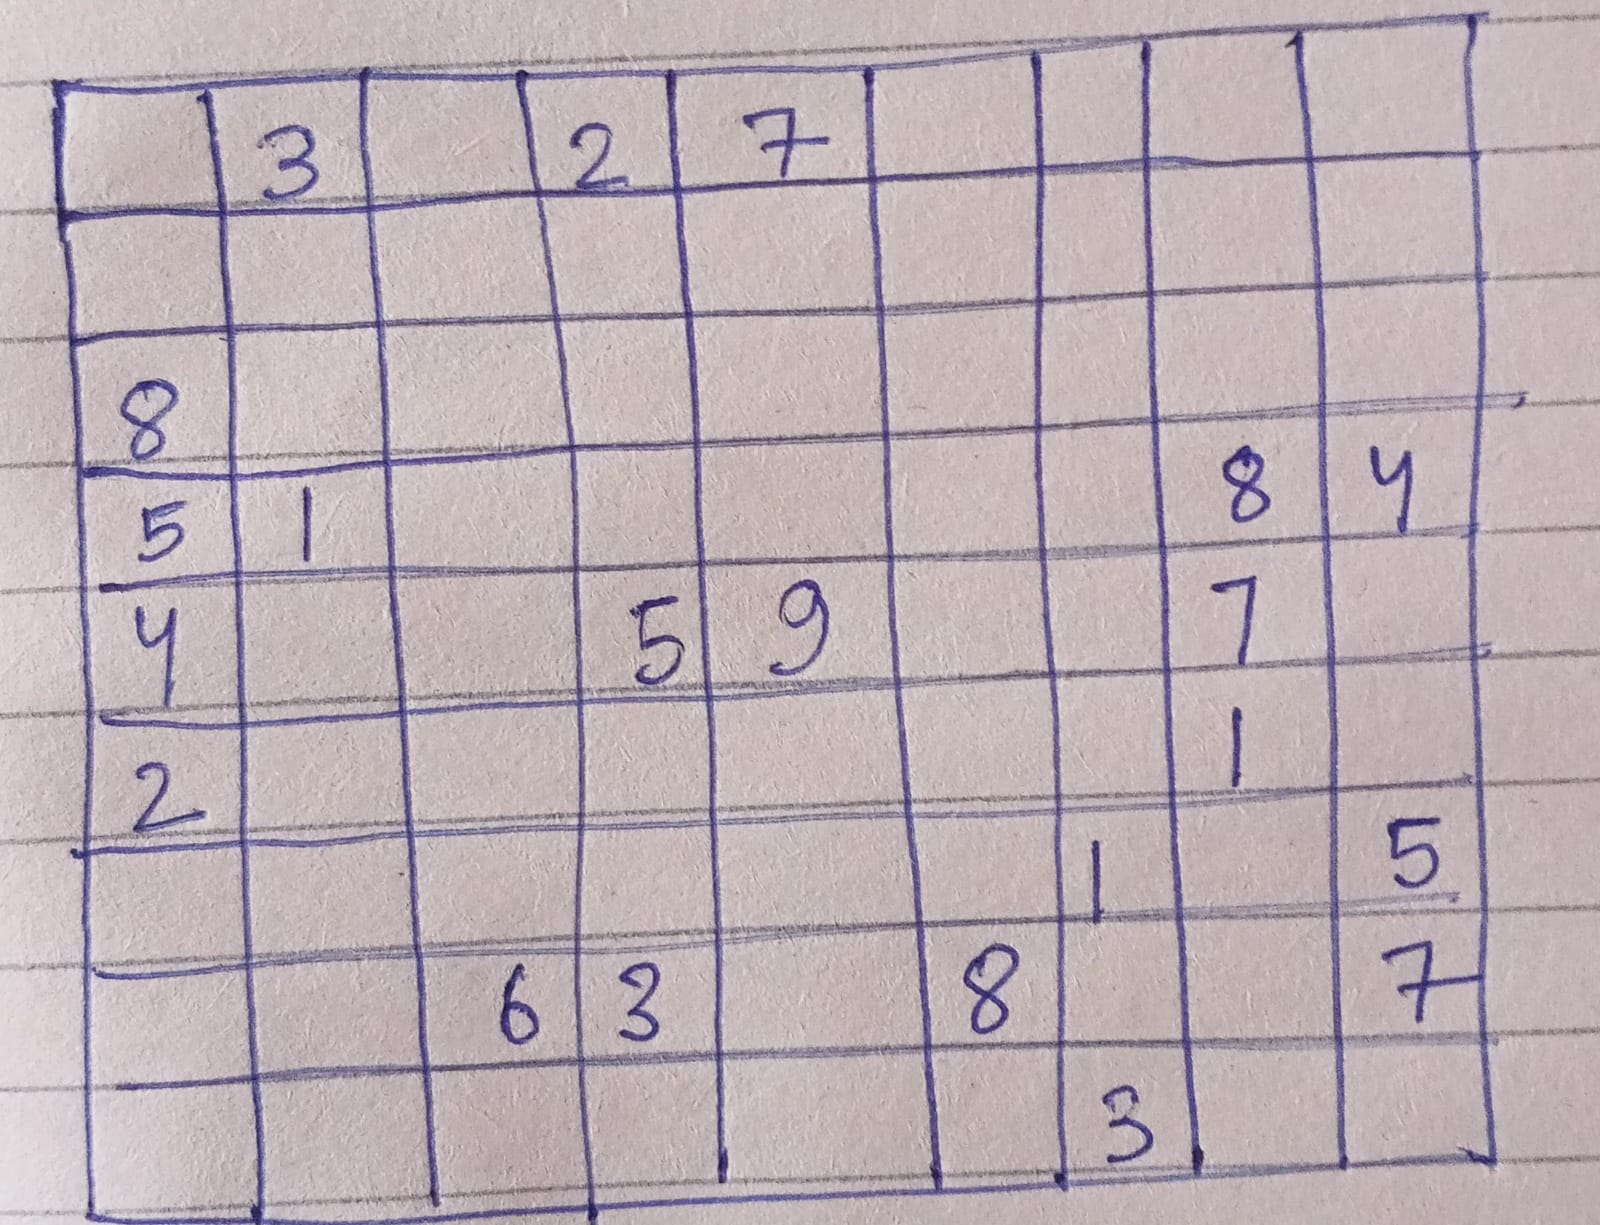 3 2 7
8
5 1 8 4
4 5 9 7
2 1
1 5
6 3 8 7
3